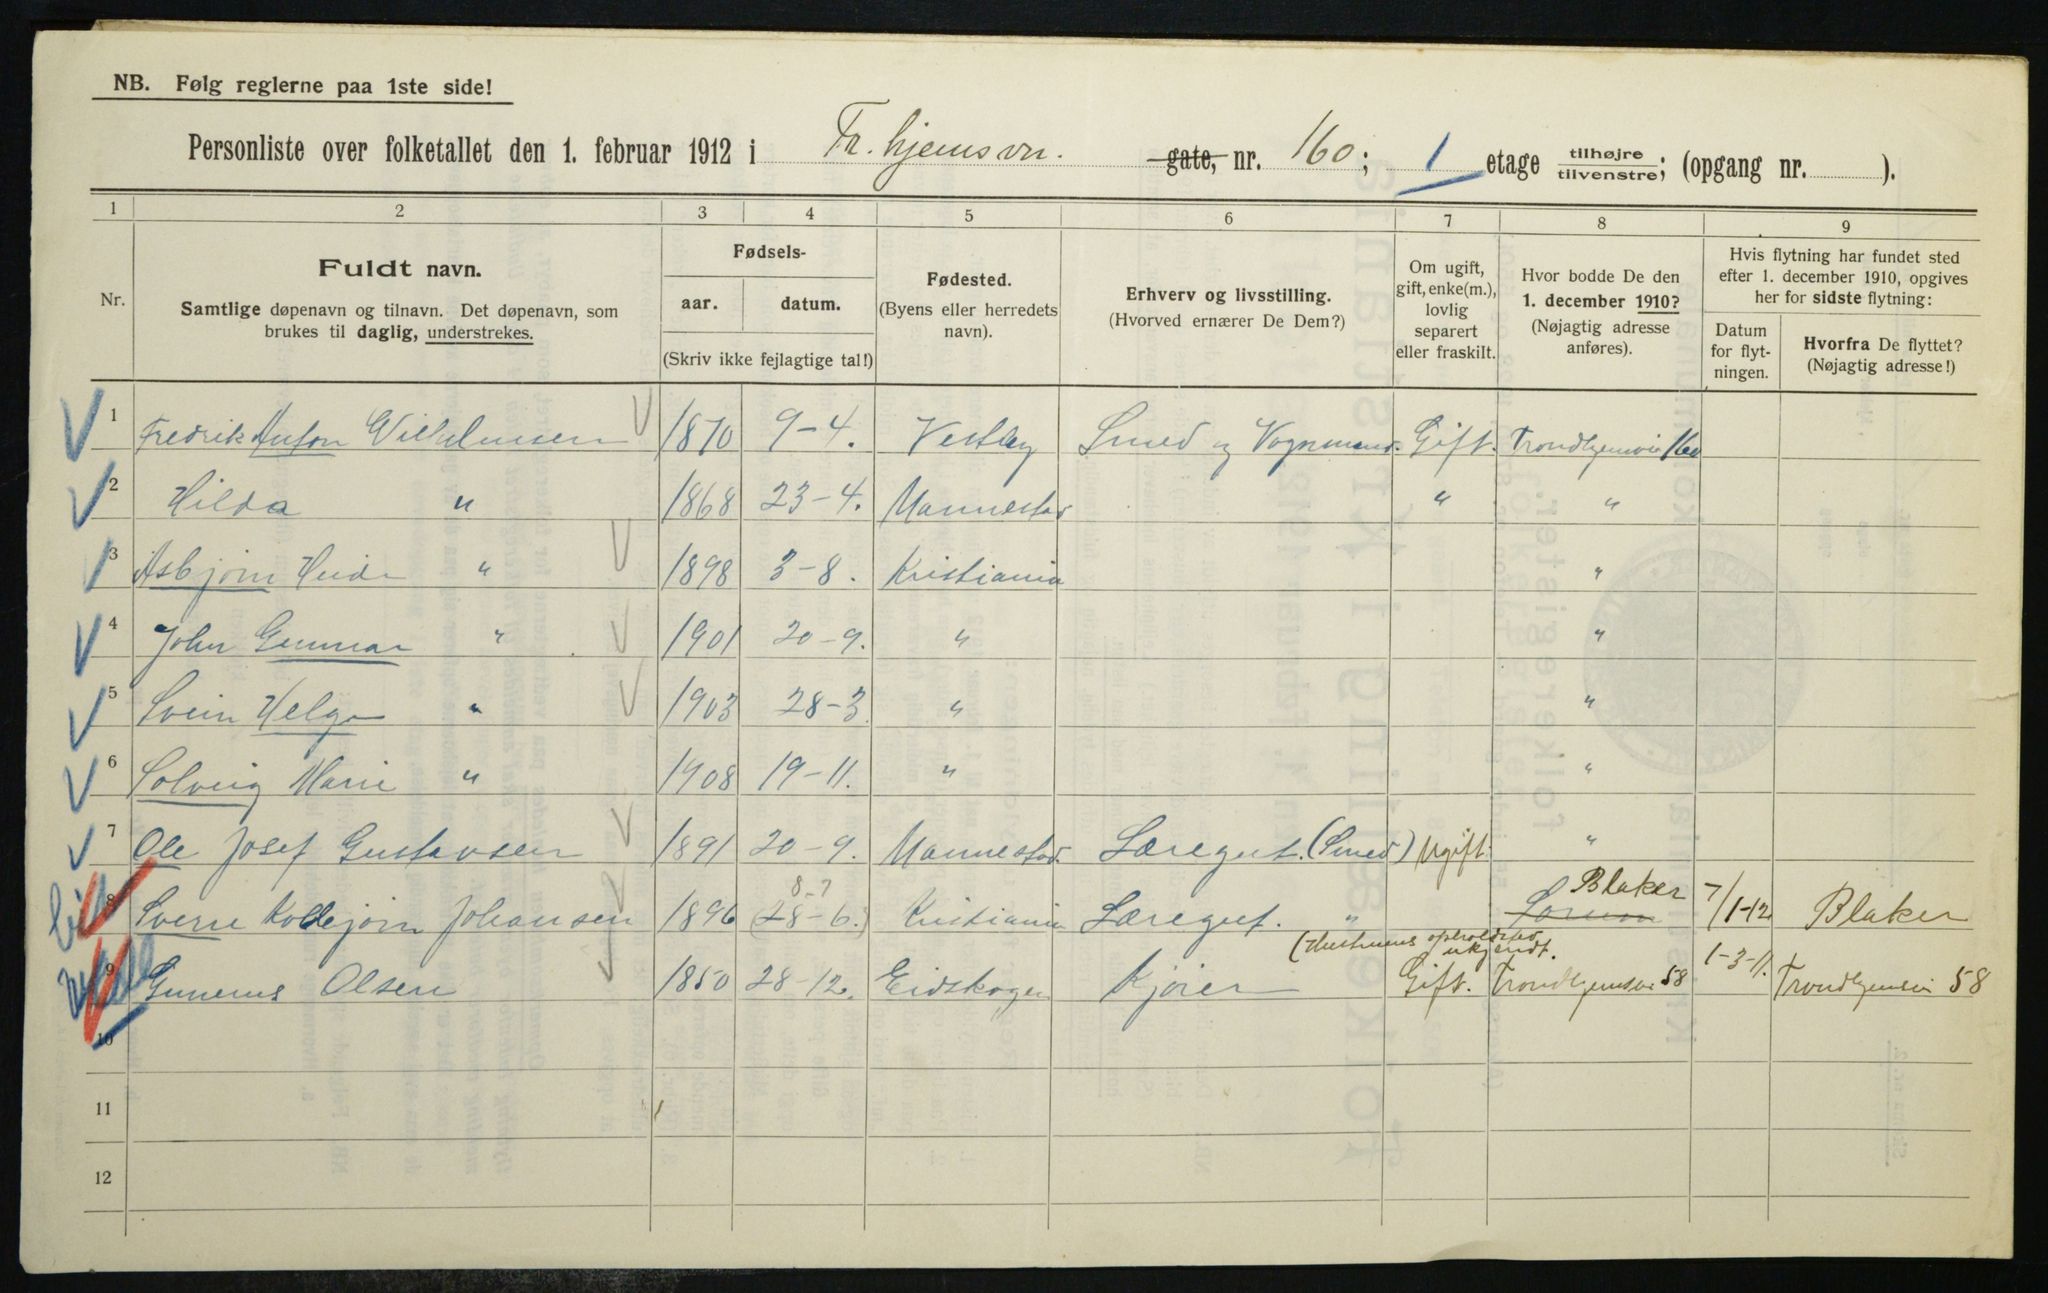 NB. Følg reglerne paa 1ste side!
Personliste over folketallet den 1. februar 1912 i Tr.hjemsvn. gate, nr. 160; 1 etage tilhøjre tilvenstre; (opgang nr. ).
1 2 3 4 5 6 7 8 9
Nr.
Fuldt navn.
Samtlige døpenavn og tilnavn. Det døpenavn, som
brukes til daglig, understrekes.
Fødsels-
aar. datum.
(Skriv ikke fejlagtige tal!)
Fødested.
(Byens eller herredets
navn).
Erhverv og livsstilling.
(Hvorved ernærer De Dem?)
Om ugift,
gift, enke(m.),
lovlig
separert
eller fraskilt.
Hvor bodde De den
1. december 1910?
(Nøjagtig adresse
anføres).
Hvis flytning har fundet sted
efter 1. december 1910, opgives
her for sidste flytning:
Datum
for flyt-
ningen.
Hvorfra De flyttet?
(Nøjagtig adresse!)
1 Fredrik Anton Wilhelmsen 1870 9-4. Vestby Smed og Vognmand. Gift. Trondhjemsvei 160
2 Hilda " 1868 23-4. Mannestad " "
3 Asbjørn " 1898 3-8. Kristiania "
4 John Gunnar " 1901 20-9. " "
5 Svein Helge " 1903 28-3 " "
6 Solveig Marie " 1908 19-11. " "
7 Ole Josef Gustavsen 1891 20-9. Mannestad. Læregut. (Smed) Ugift. "
8-7 Blaker
8 Sverre Johansen 1896 (28-6.) Kristiania Læregut. " Sørum 7/1-12 Blaker
(Hustruens opholdsted
ukjendt.
9 Gunerius Olsen 1850 28-12. Eidskogen Kjører Gift. Trondhjemsvei 58 1-3-11. Trondhjemsvei 58
10
11
12